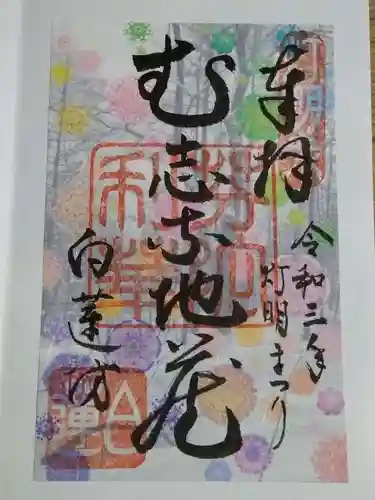 奉拝
令和三年
灯明まつり
むし志地蔵
白蓮坊